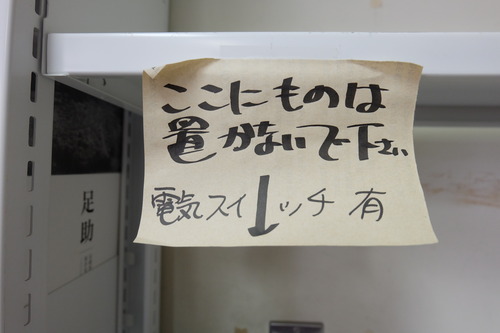 ここにものは
置かないで下さい
電気スイッチ 有
↓
足助